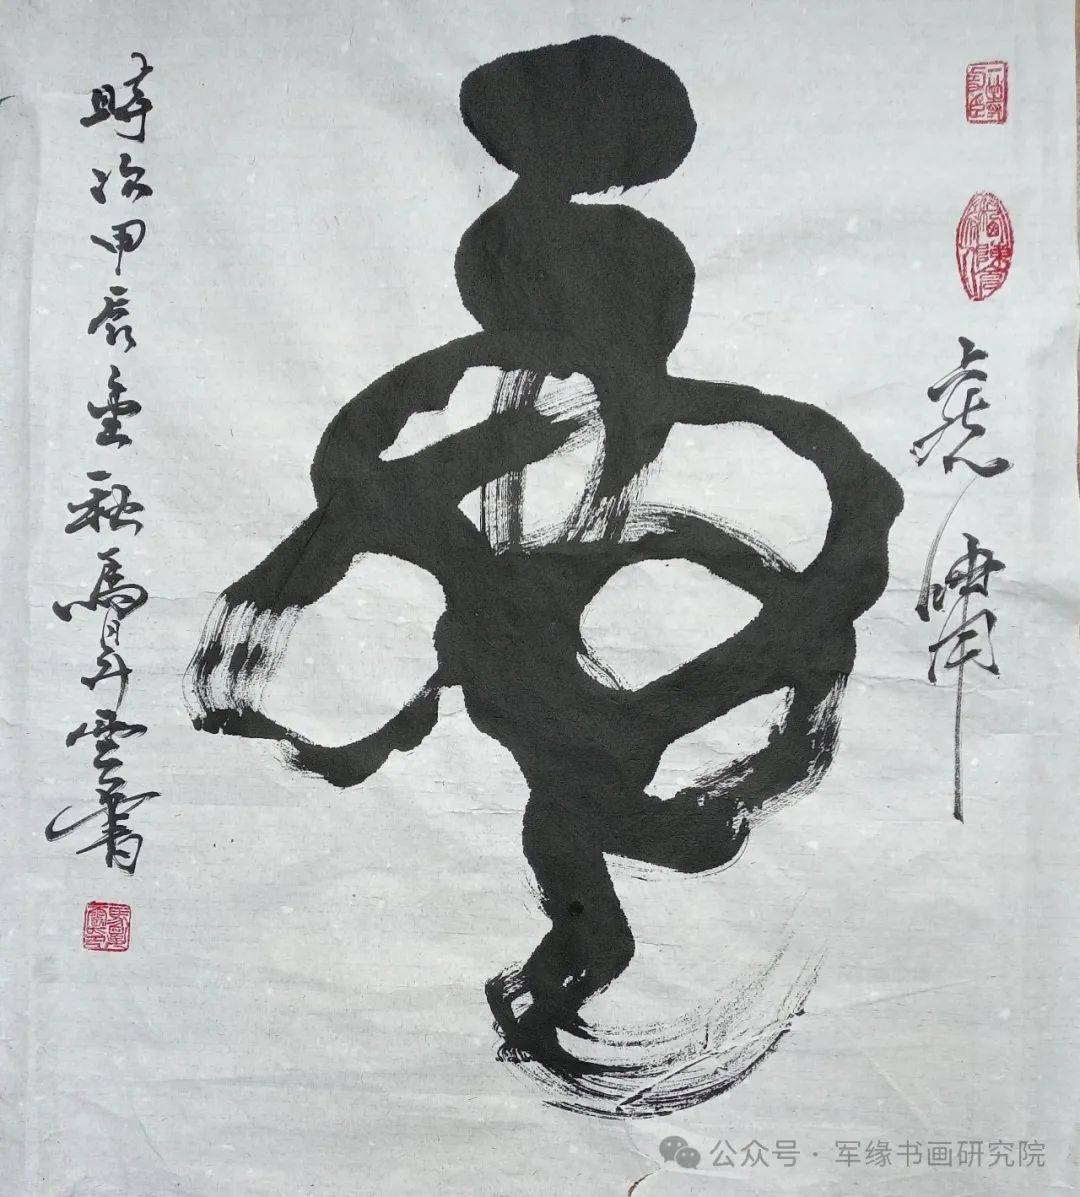 虎嘯
時次甲辰金秋馬昇雲書
公众号 · 军缘书画研究院